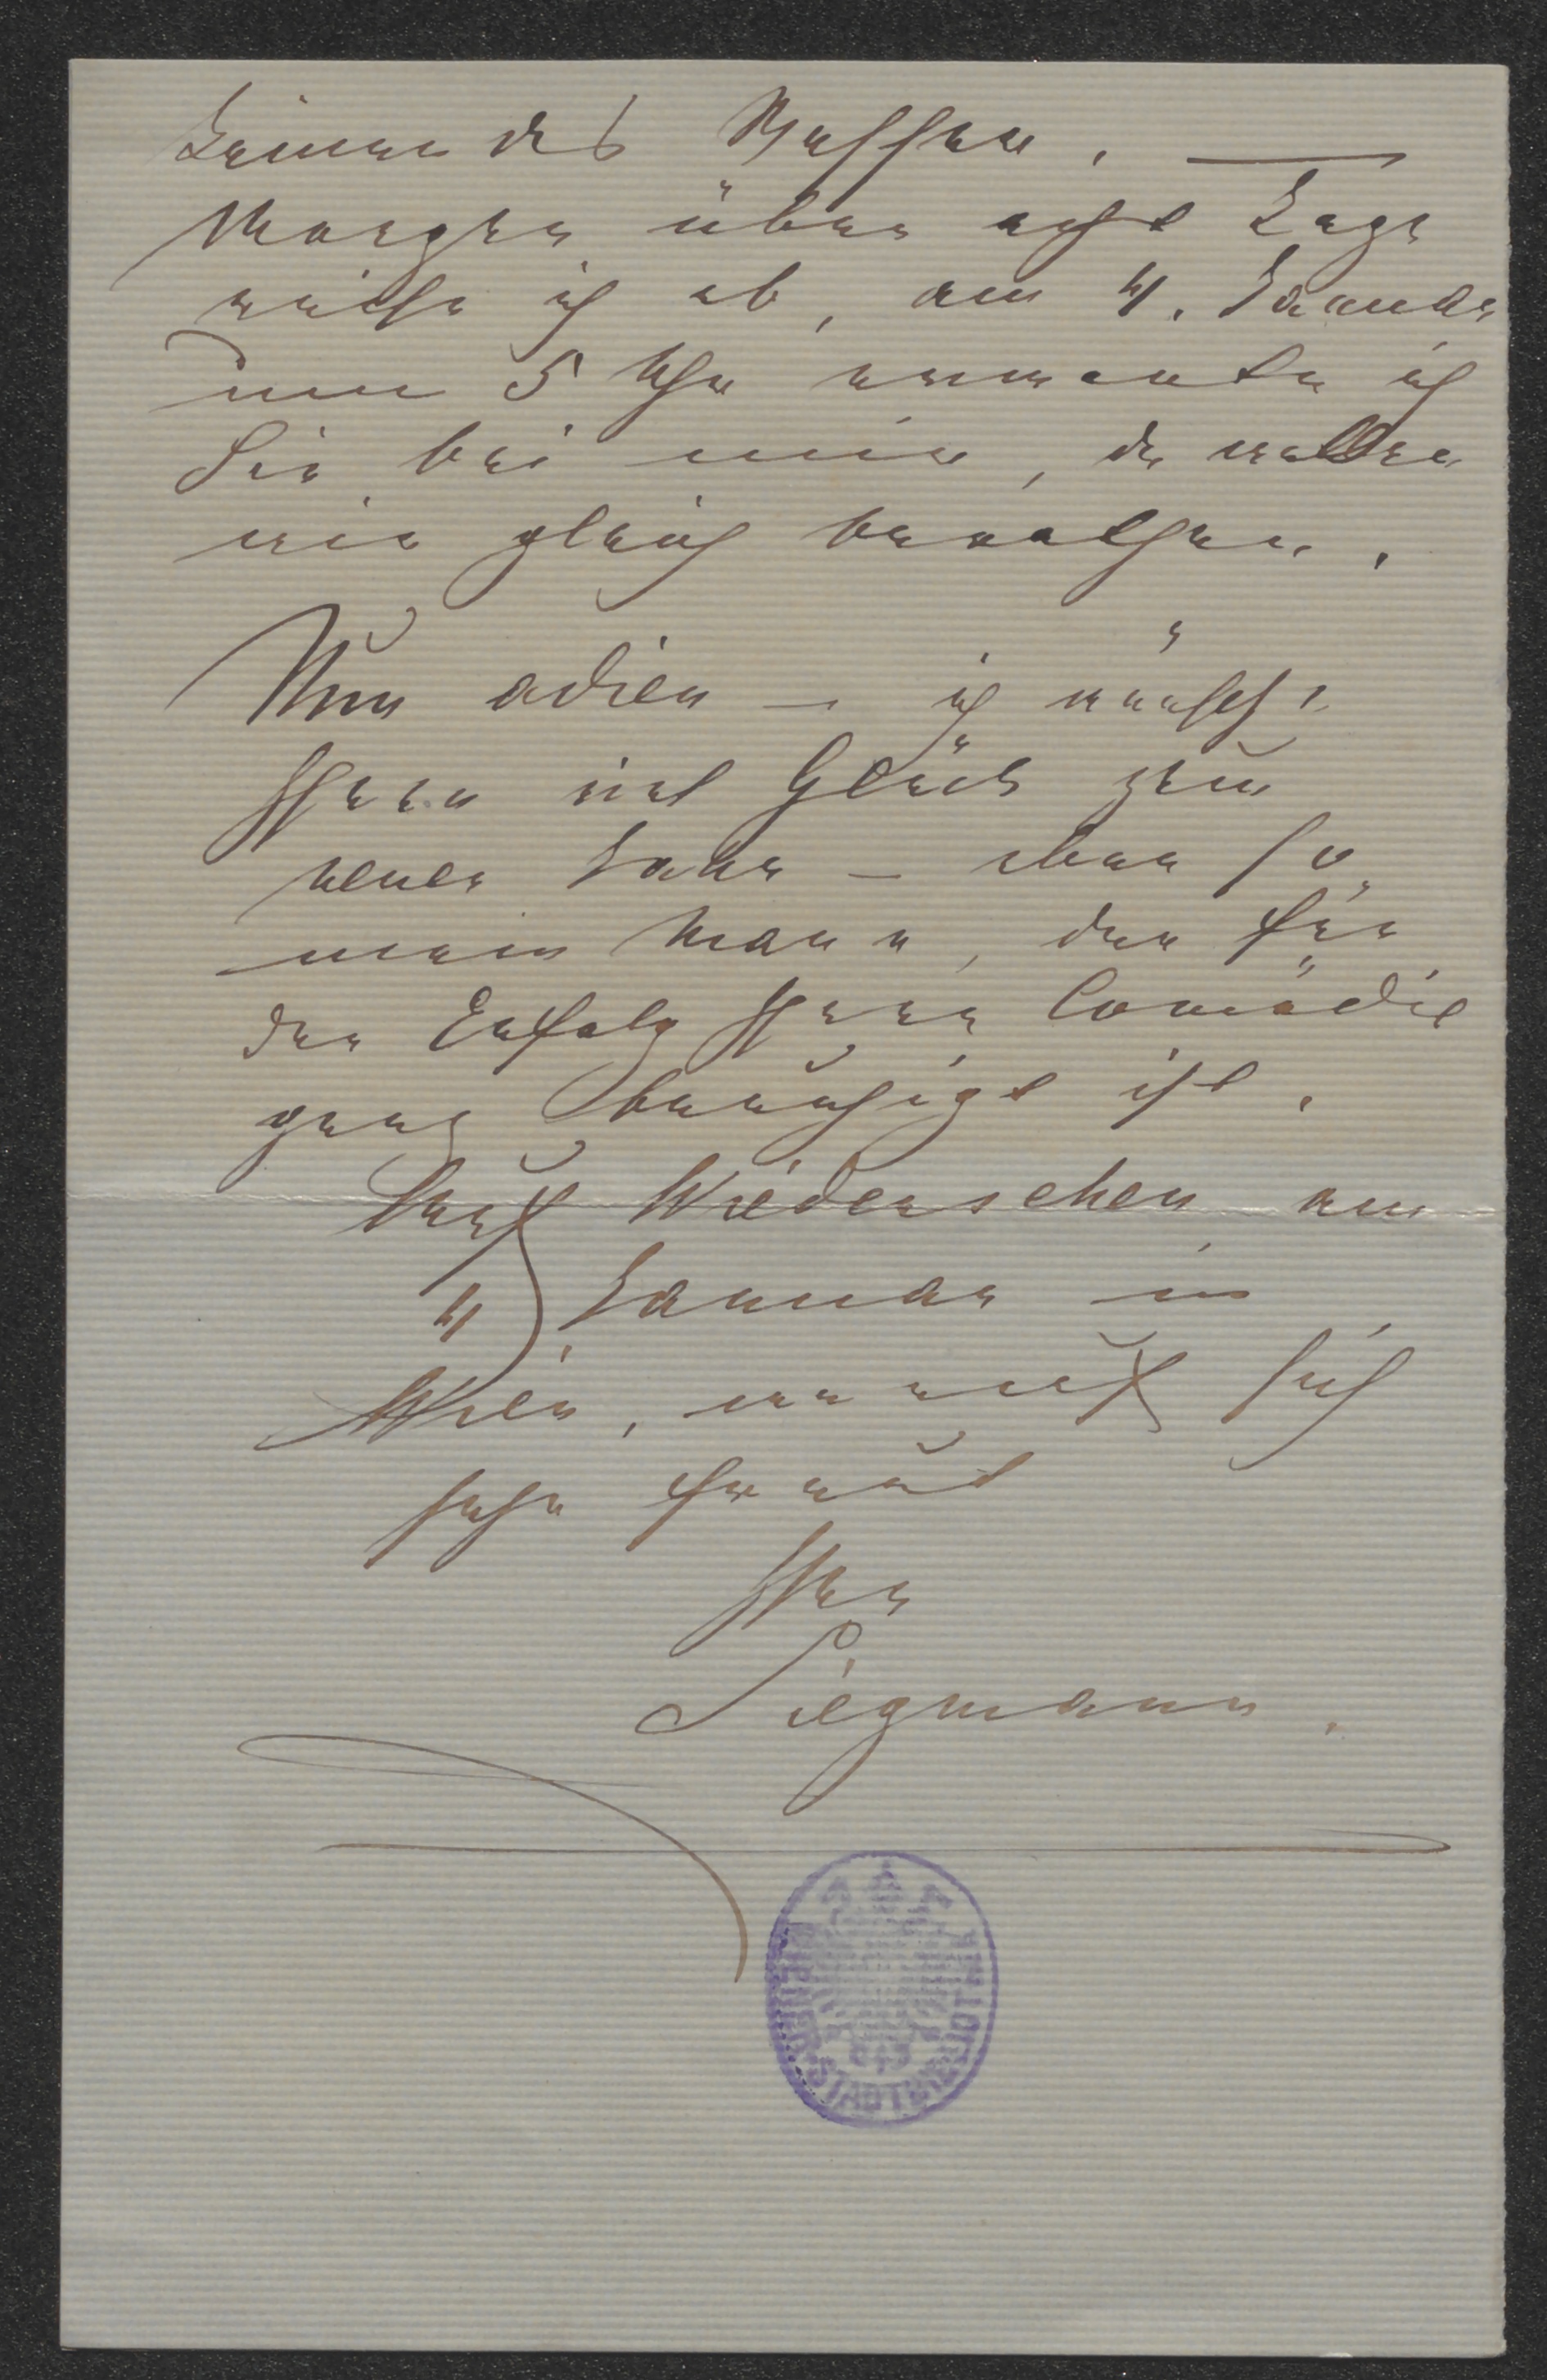 keinen des
Morgen über acht Tage
reise ich ab, am 4. Januar
um 5 Uhr erwarte ich
Sie bei mir, da wollen
wir gleich berathen.
Nun adieu – ich wünsche
Ihnen viel Glück zum
neuen Jahr – eben so
mein Mann, der für
den Erfolg Ihrer Comödie
ganz beruhigt ist.
Auf Wiedersehen am
4 Januar in
Wien, worauf sich
sehr freut
Ihre
Siegmann.
STADTBIBLIOTHEK